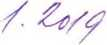 1. 2019